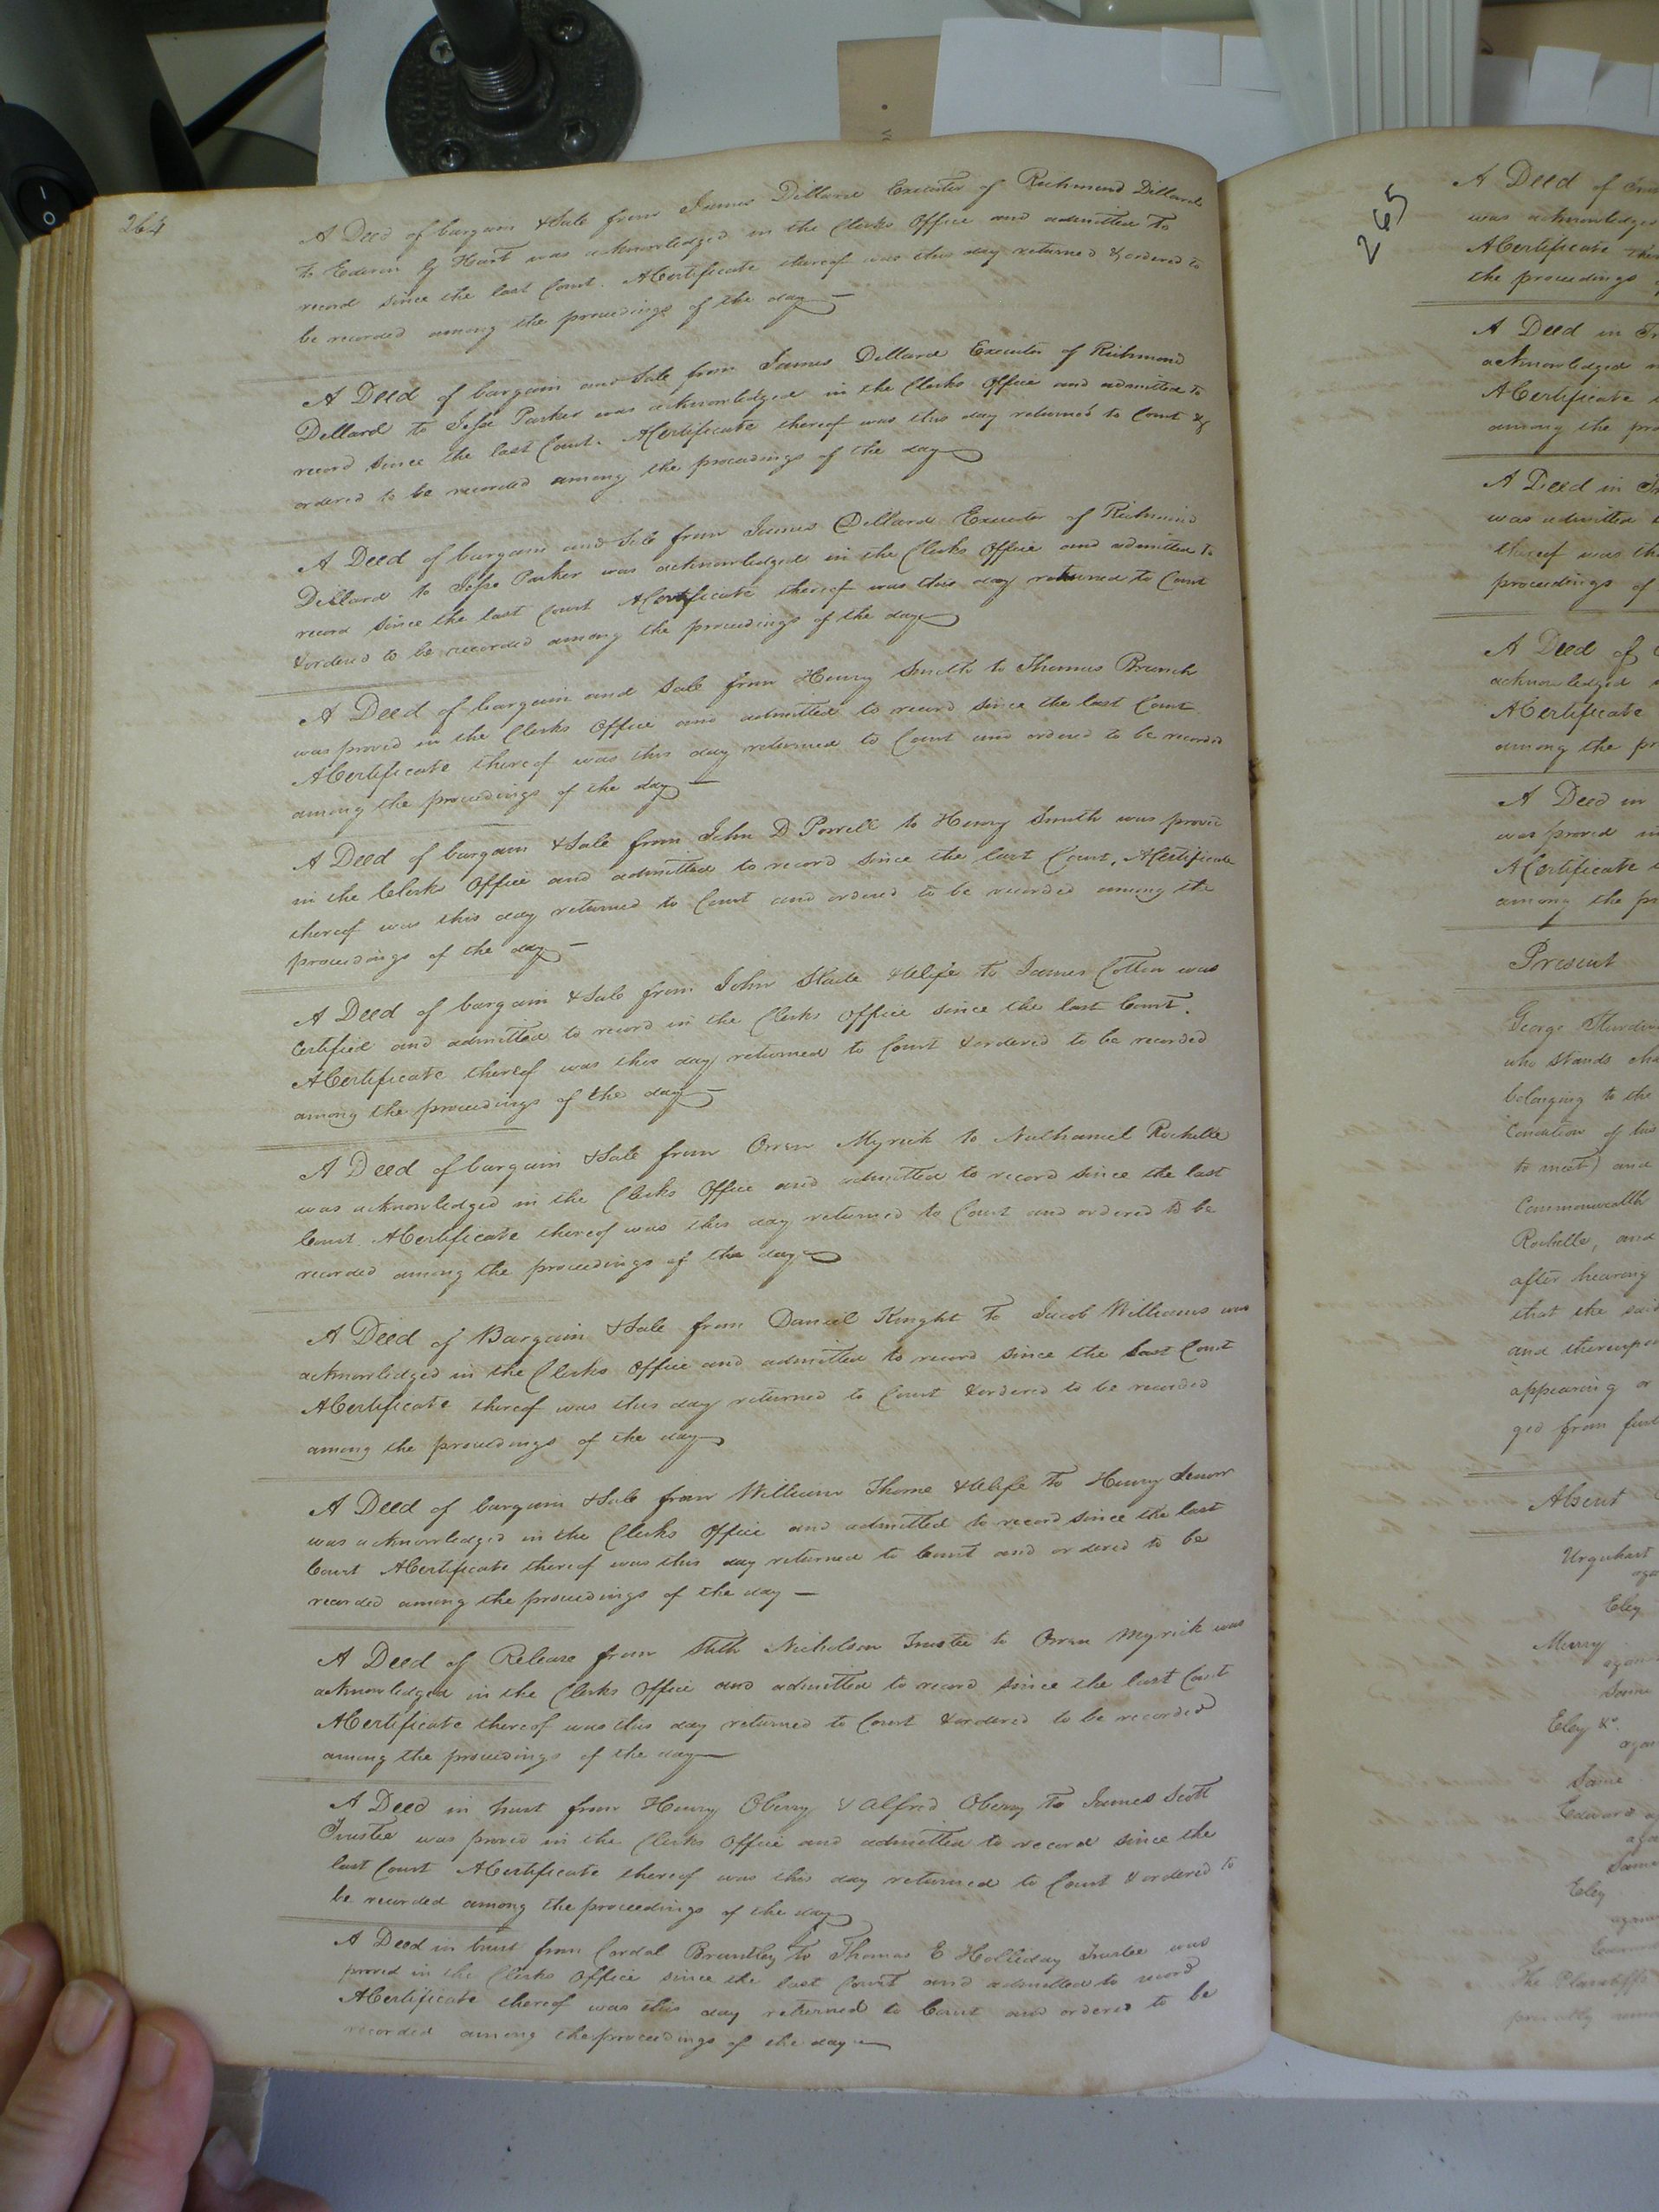 264
A Deed of bargain & Sale from James Dillard Executor of Richmond Dillard
to Edwin G Hart was acknowledged in the Clerks Office and admitted to
record since the last Court. A Certificate thereof was this day returned & ordered to
be recorded among the proceedings of the day
A Deed of bargain and Sale from James Dillard Executor of Richmond
Dillard to Jesse Parker was acknowledged in the Clerks Office and admitted to
record since the last Court. A Certificate thereof was this day returned to Court &
ordered to be recorded among the proceedings of the day
A Deed of bargain and Sale from James Dillard Executor of Richmond
Dillard to Jesse Parker was acknowledged in the Clerks Office and admitted to
record since the last Court A Certificate thereof was this day returned to Court
& ordered to be recorded among the proceedings of the day
A Deed of bargain and Sale from Henry Smith to Thomas Branch
was proved in the Clerks Office and admitted to record since the last Court
A Certificate thereof was this day returned to Court and ordered to be recorded
among the proceedings of the day
A Deed of bargain & Sale from John D Powell to Henry Smith was proved
in the Clerks Office and admitted to record since the last Court. A Certificate
thereof was this day returned to Court and ordered to be recorded among the
proceedings of the day
A Deed of bargain & Sale from John Slade & Wife to James Cotton was
Certified and admitted to record in the Clerks Office since the last Court.
A Certificate thereof was this day returned to Court & ordered to be recorded
among the proceedings of the day
A Deed of bargain & Sale from Owen Myrick to Nathaniel Rochelle
was acknowledged in the Clerks Office and admitted to record since the last
Court. A Certificate thereof was this day returned to Court and ordered to be
recorded among the proceedings of the day
A Deed of Bargain & Sale from Daniel Knight to Jacob Williams was
acknowledged in the Clerks Office and admitted to record since the last Court
A Certificate thereof was this day returned to Court & ordered to be recorded
among the proceedings of the day
A Deed of bargain & Sale from William Thorne & Wife to Henry
was acknowledged in the Clerks Office and admitted to record since the last
Court A Certificate thereof was this day returned to Court and ordered to be
recorded among the proceedings of the day
A Deed of Release from Nicholson Trustee to Owen Myrick was
acknowledged in the Clerks Office and admitted to record since the last Court
A Certificate thereof was this day returned to Court & ordered to be recorded
among the proceedings of the day
A Deed in trust from Henry Oberry & Alfred Oberry to James Scott
Trustee was proved in the Clerks Office and admitted to record since the
last Court A Certificate thereof was this day returned to Court & ordered to
be recorded among the proceedings of the day
A Deed in trust from Cordal Brantley to Thomas E Holleday Trustee was
proved in the Clerks Office since the last Court and admitted to record
A Certificate thereof was this day returned to Court and ordered to be
recorded among the proceedings of the day
265
A Deed of
was acknowledged
A Certificate
the proceedings
A Deed in
acknowledged
A Certificate
among the
A Deed in
was admitted
thereof was
proceedings of
A Deed of
acknowledged
A Certificate
among the
A Deed in
was proved
A Certificate
among the
Present
George
who stands
belonging to the
Condition of
to meet) and
Commonwealth
Rochelle, and
after hearing
that the said
and thereupon
appearing or
ged from
Absent
Urquhart
Eley
Murry
Same
Eley &c.
Same
Edward
Same
Eley
The Plaintiffs